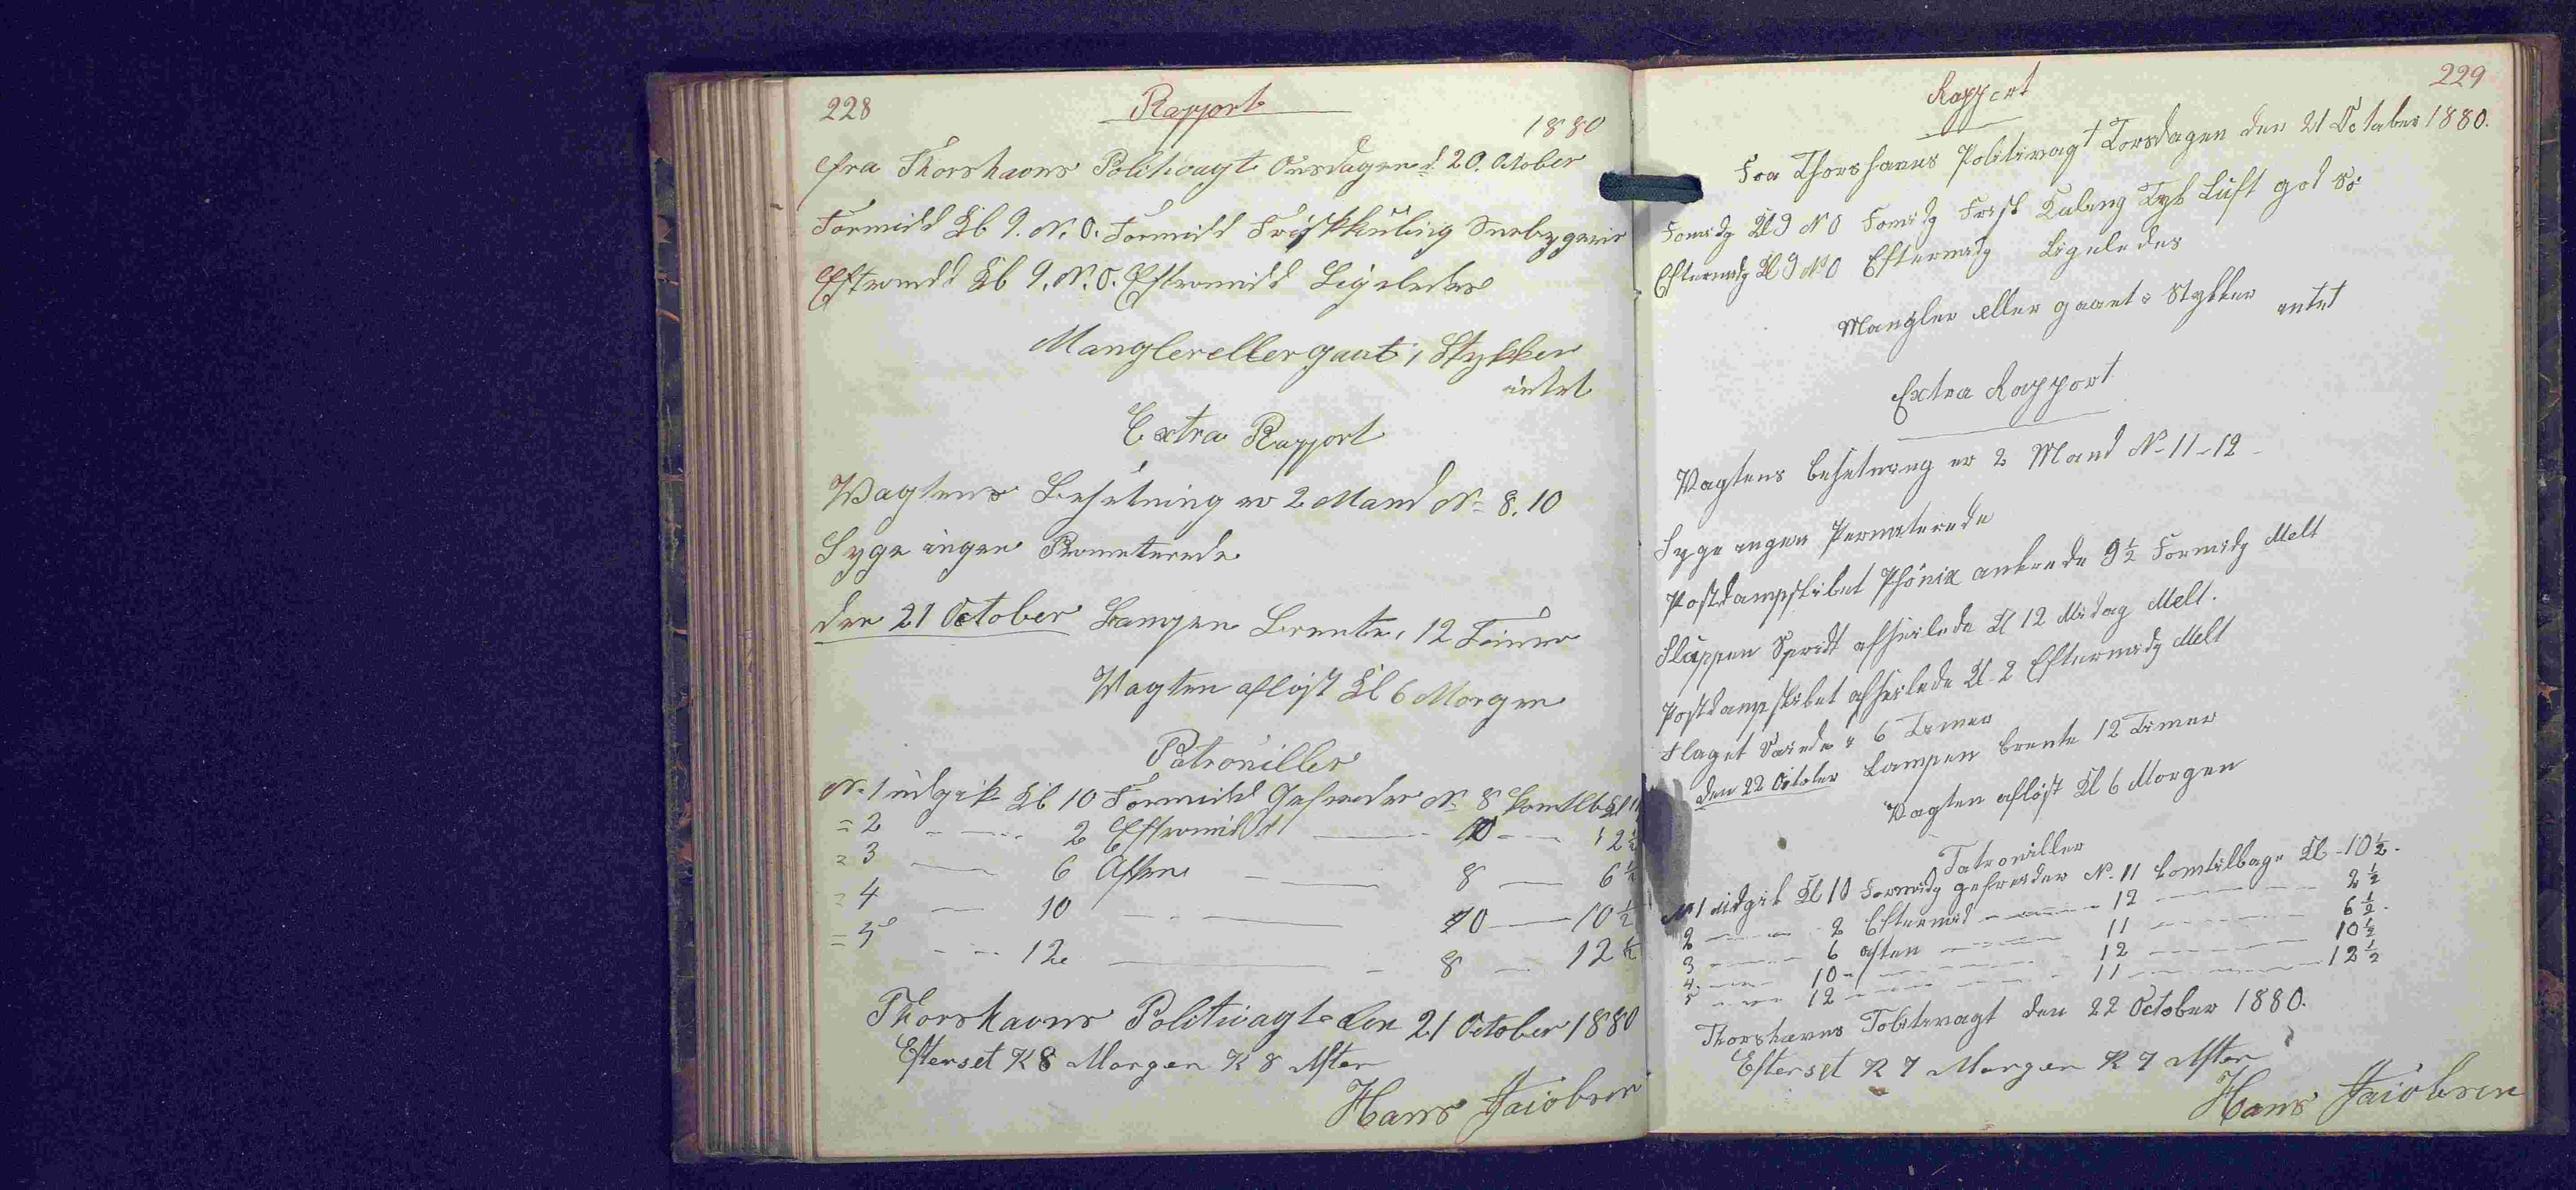 228
Rapport
1880
fra Thorshavns Politivagt Onsdagen d 20. October
Formidd Kl 9. N. O. Formidd Friskkuling Snebygevir
Eftermidd Kl 9. N. O. Eftermidd Ligeledes
Mangler eller gaaet i Stykker
intet
Extra Rapport
Wagtens Besetning er 2 Mand N= 8. 10
Syge ingen Permeterede
den 21 October Lampen Brente, 12 Timer
Vagten afløst Kl 6 Morgen
Patrouiller
N= 1 udgik Kl 10 Formidd Gefreider N= 8 komtilb Kl
= 2 2 Eftermidd 10 2½
= 3 6 Aften 8 6½
= 4 10 10 10½
= 5 12 8 12½
Thorshavns Politivagt den 21 October 1880
Efterset K 8 Morgen K 8 Aften
Hans Jaiobsen
229
Rapport
Fra Thorshavns Politivagt Torsdagen den 21 October 1880.
Formidg Kl 9 N O Formidg Frisk Kuling Tyk Luft god Sö
Eftermidg Kl 9 N O Eftermidg Ligeledes
Mangler eller gaaet i Stykker intet
Extra Rapport
Vagtens besetning er 2 Mand N- 11 - 12 -
Syge ingen Permeterede
Postdampskibet Phönix ankrede 9½ Formidg Melt
Sluppen Spridt afseilede Kl 12 Midag Melt.
Postdampskibet afseilede Kl - 2 Eftermidg Melt
Flaget Vaiede i 6 Timer
den 22 October Lampen brente 12 Timer
Vagten afløst Kl 6 Morgen
Patrouiller
N= 1 udgik Kl 10 Formidg gefreider N. 11 komtilbage Kl - 10½.
2 2 Eftermid 12 2½
3 6 aften 11 6½.
4. 10 12 10½
5 12 11 12½
Thorshavns Politivagt den 22 October 1880.
Efterset K 7 Morgen K 7 Aften
Hans Jaiobsen